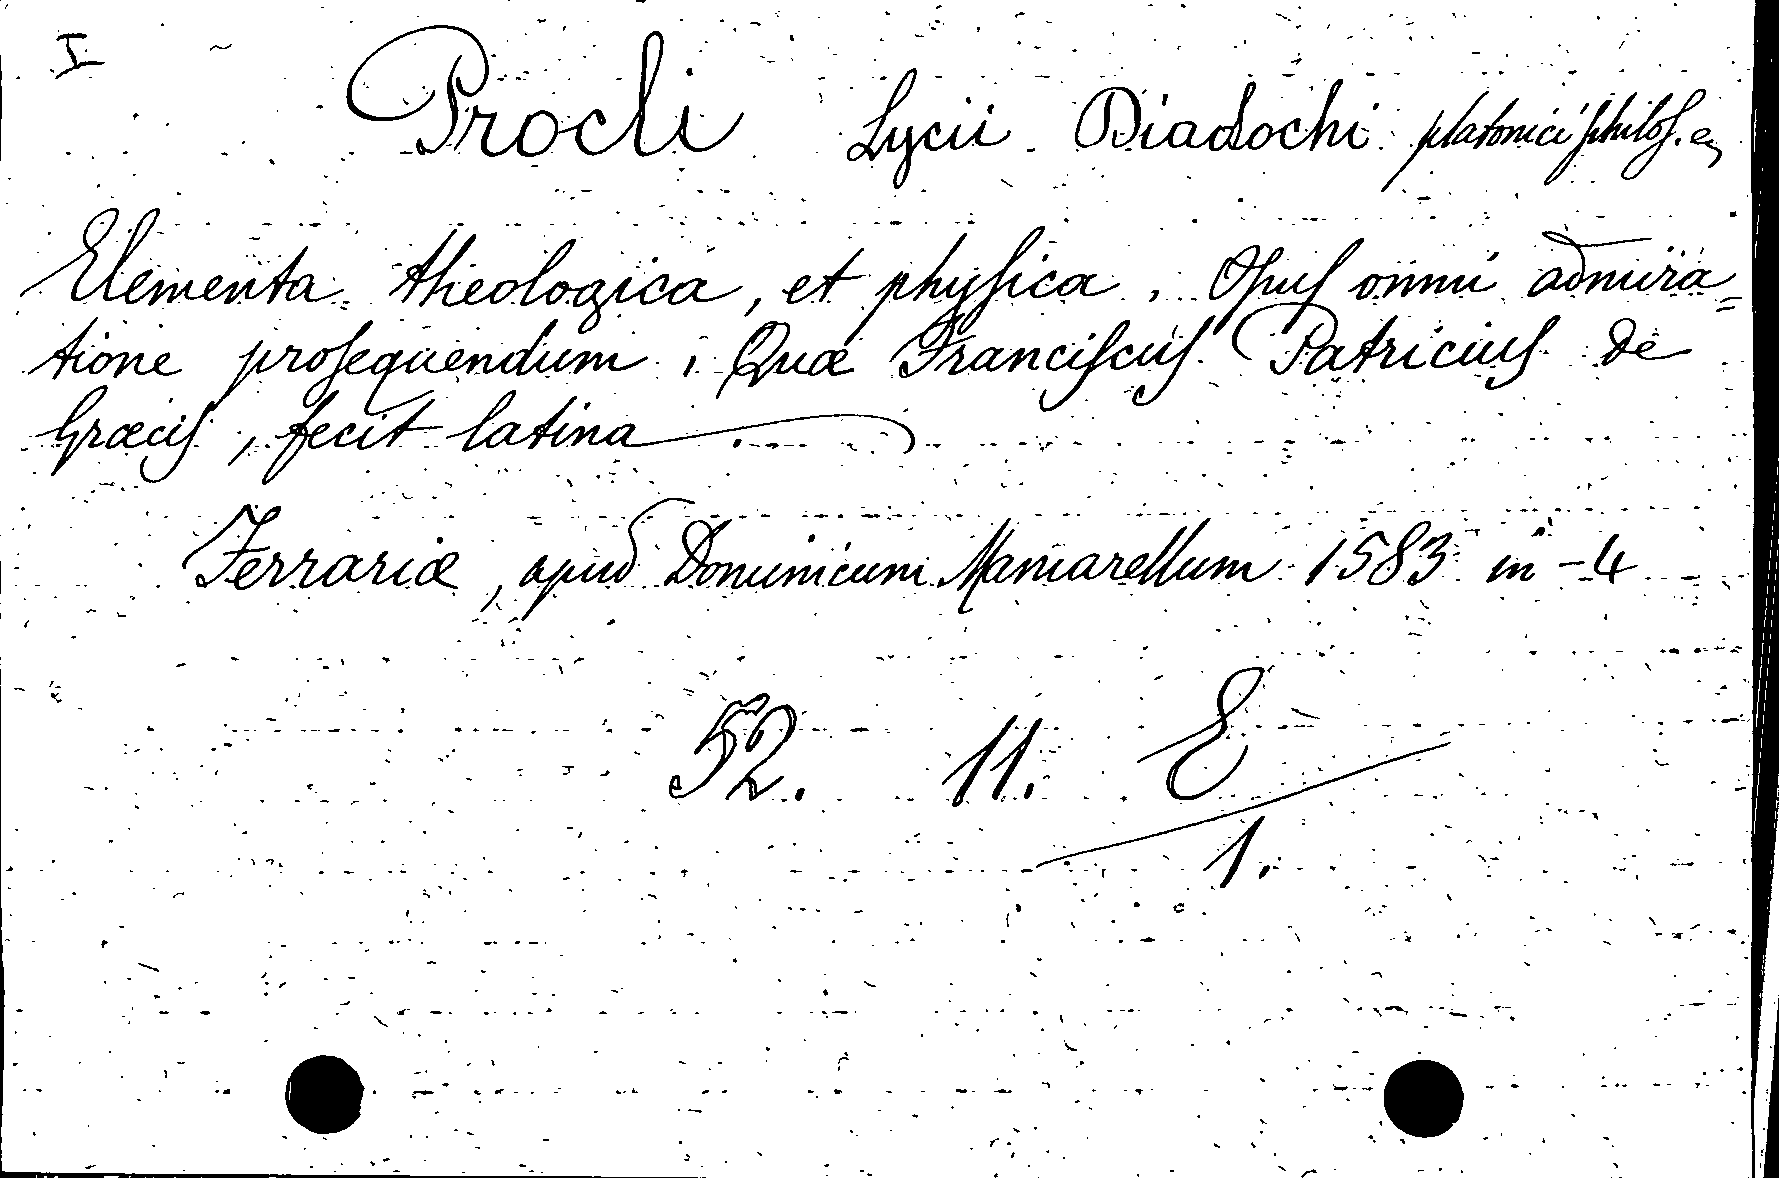 I
Procli Lycii Diadochi platonici philoſ. eꝫ
Elementa theologica, et phyſica. Opuſ omni admira=
tione proſequendum. Quæ Franciſcuſ Patriciuſ de
Græciſ, fecit latina
Ferrariæ, apud Dominicum Mamarellum 1583 in-4
52. 11. E
1.